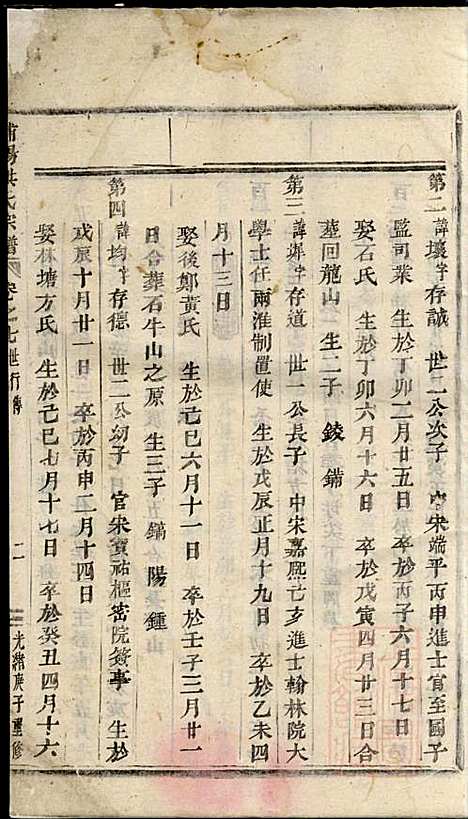 第二諱壤字存誠 世二公次子 宋端平丙申進士官至國子
監司業 生於丁卯二月廿五日 卒於丙子六月十七日
娶石氏 生於丁卯六月十六日 卒於戊寅四月廿三日合
葬回龍山 生二子 錂 鏋
第三諱墀字存道 世一公長子 中宋嘉熙亡亥進士翰林院大
學士任兩淮制置使 生於戊辰正月十九日 卒於乙未四
月十三日
娶後鄭黃氏 生於己巳六月十一日 卒於壬子三月廿一
日合葬石牛山之原 生三子 鏑 陽 鍾
第四諱均字存德 世二公幼子 官宋寶祐樞密院簽事 生於
戊辰十月廿一日 卒於丙申二月十四日
娶林塘方氏 生於己巳七月十七日 卒於癸丑四月十六
浦陽洪氏宗譜 卷之七世行傳 二 光緒庚子重修